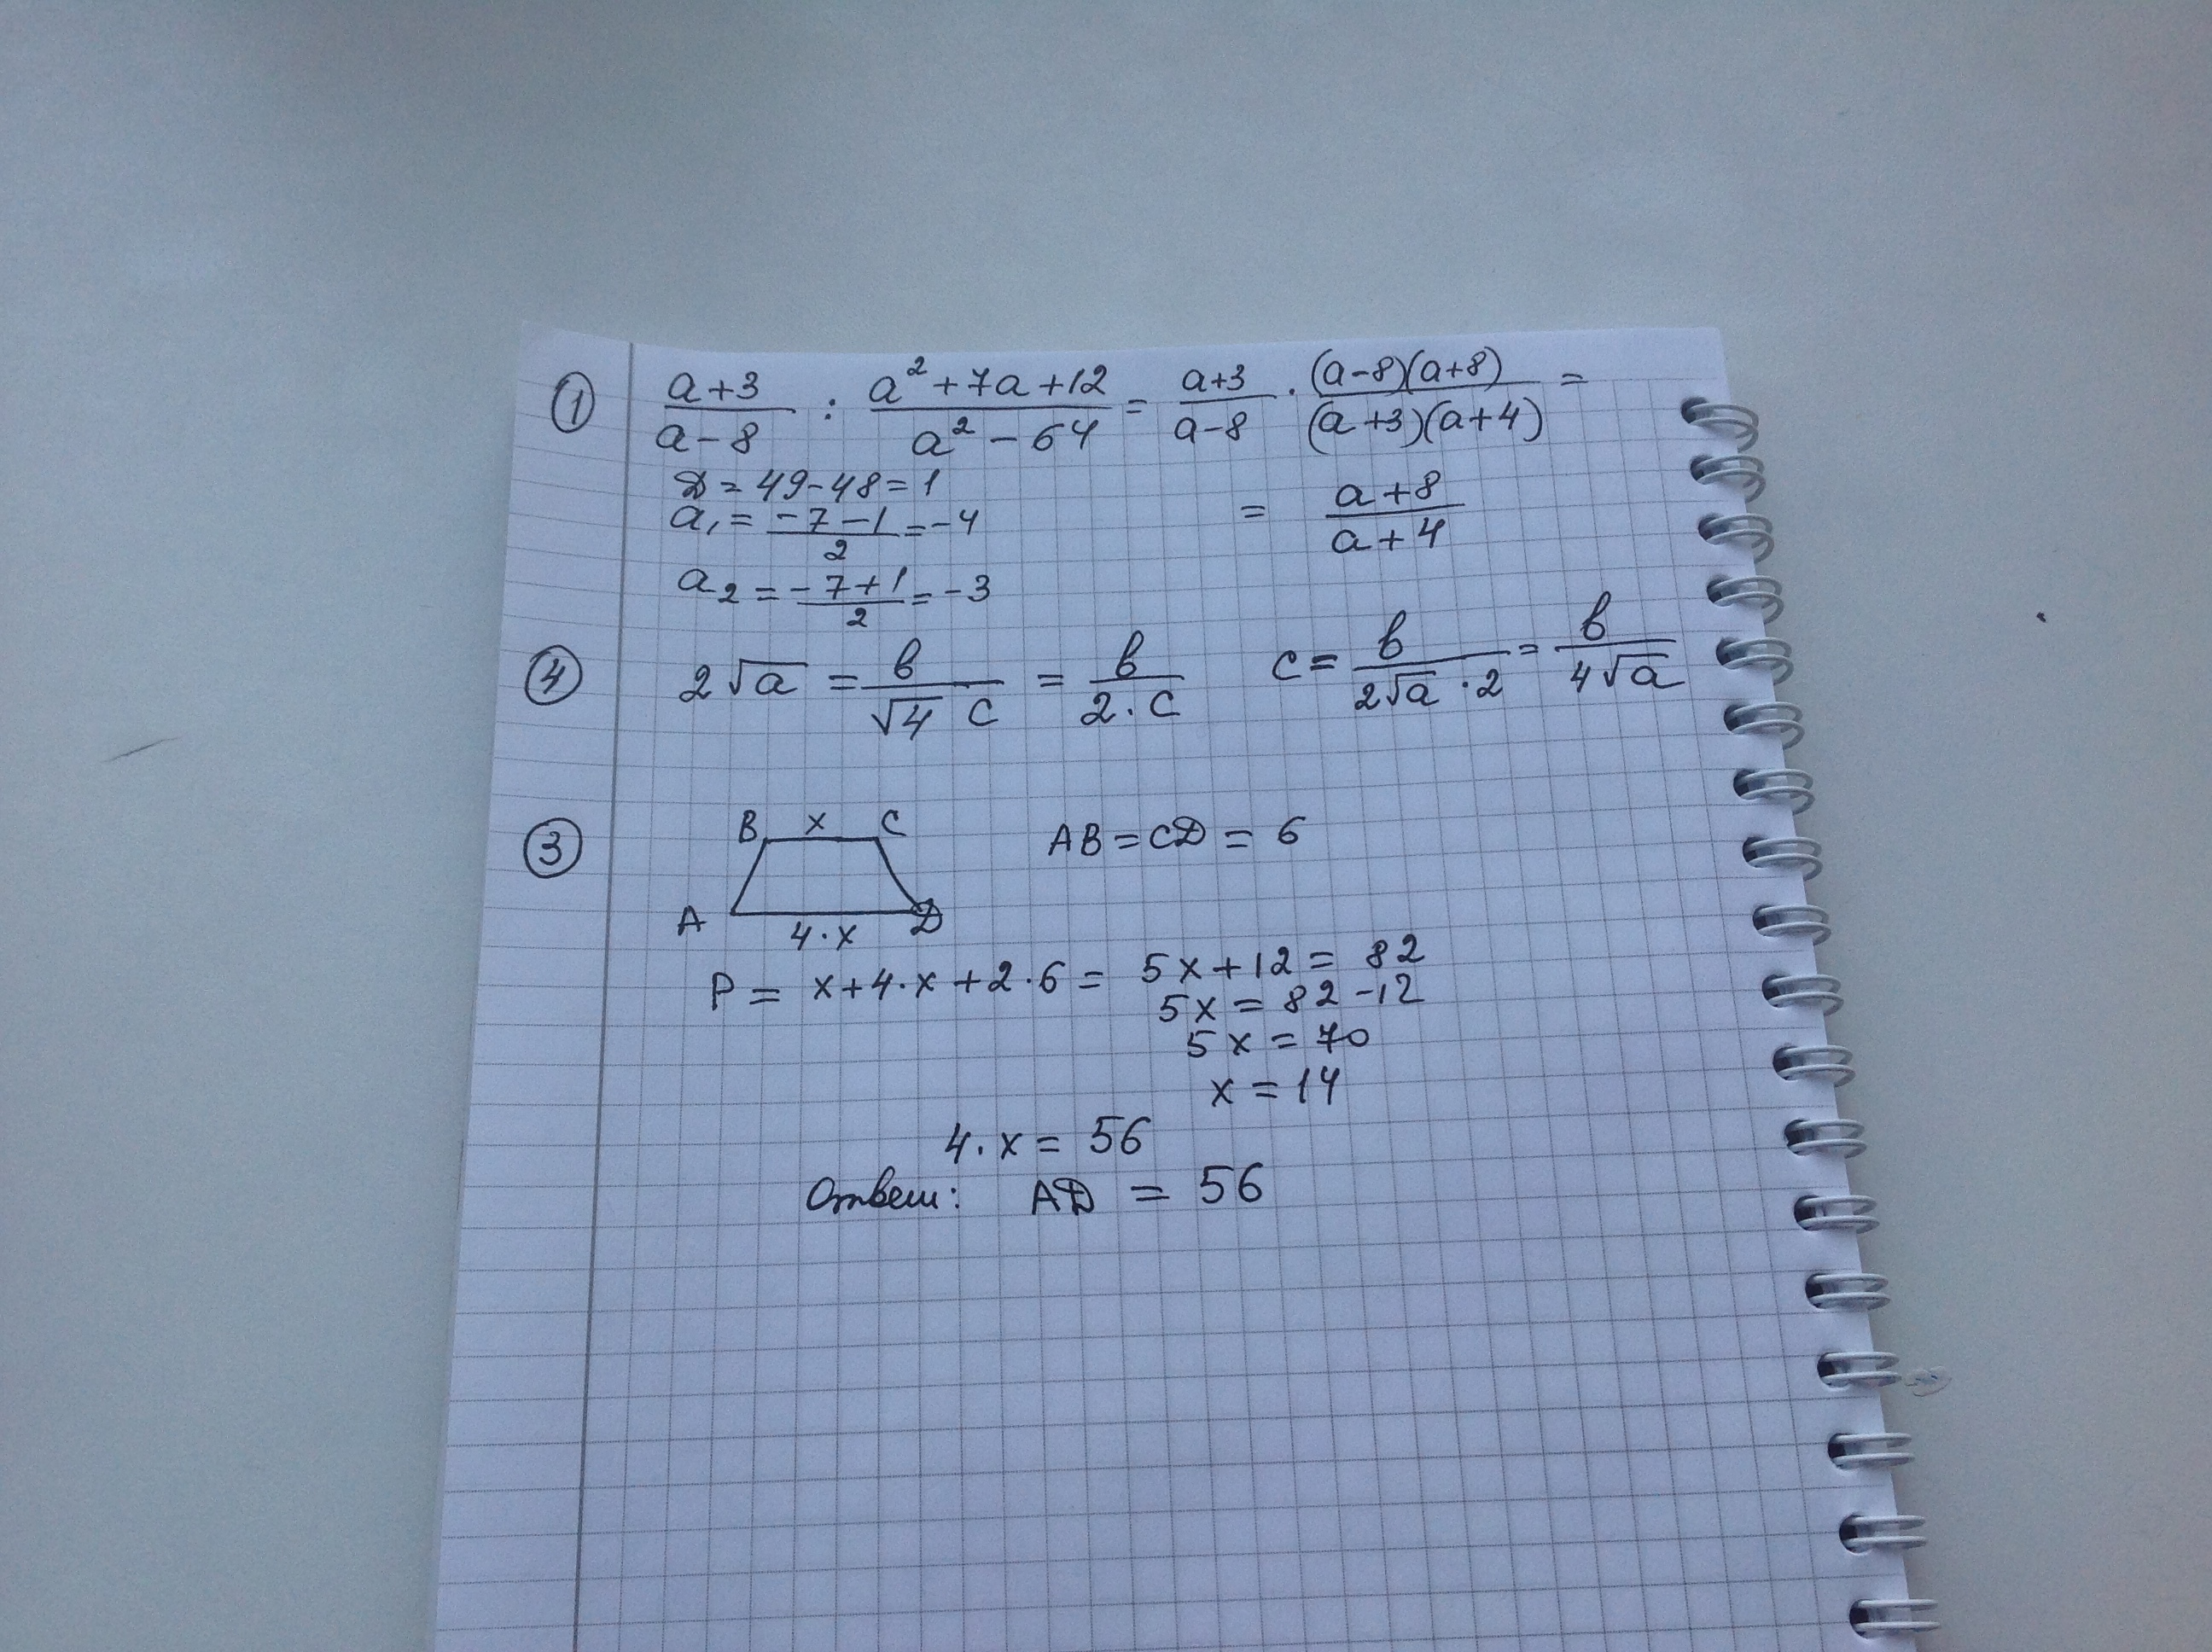 ① (a+3)/(a-8) : (a²+7a+12)/(a²-64) = (a+3)/(a-8) · ((a-8)(a+8))/((a+3)(a+4)) =
D = 49-48=1
= (a+8)/(a+4)
a₁ = (-7-1)/2 = -4
a₂ = (-7+1)/2 = -3
④ 2√a = в/(√4 c) = в/(2·c) c = в/(2√a·2) = в/(4√a)
③ B x C AB = CD = 6
A 4·x D
P = x+4·x+2·6 = 5x+12 = 82
5x = 82-12
5x = 70
x = 14
4·x = 56
Ответ: AD = 56